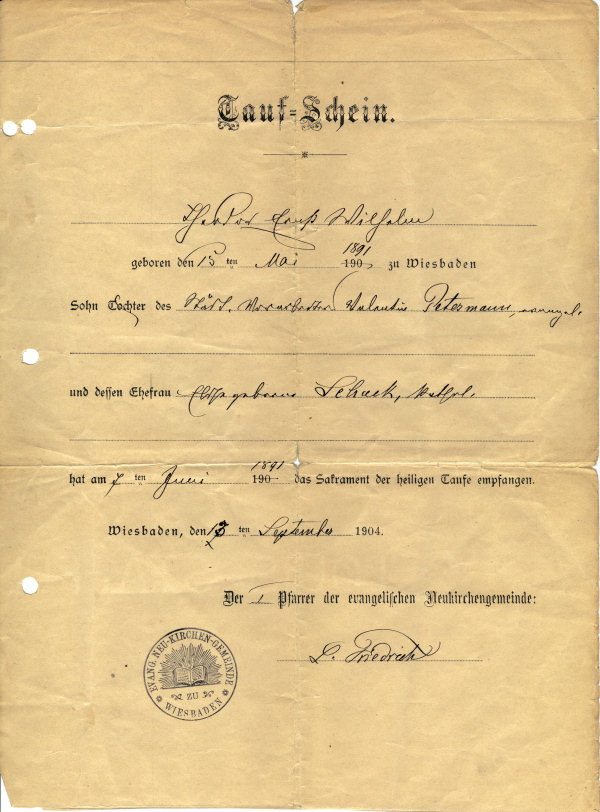 Tauf-Schein.
Theodor Ernst Wilhelm
geboren den 15 ten Mai 1891 190 zu Wiesbaden
Sohn Tochter des Städt. Vorarbeiter Valentin Petermann, evangel.
und dessen Ehefrau Elise geborene Schack, kathol.
hat am 7 ten Juni 1891 190 das Sakrament der heiligen Taufe empfangen.
Wiesbaden, den 13 ten September 1904.
Der I Pfarrer der evangelischen Neukirchengemeinde:
L. Friedrich
EVANG. NEU-KIRCHEN-GEMEINDE
ZU
WIESBADEN